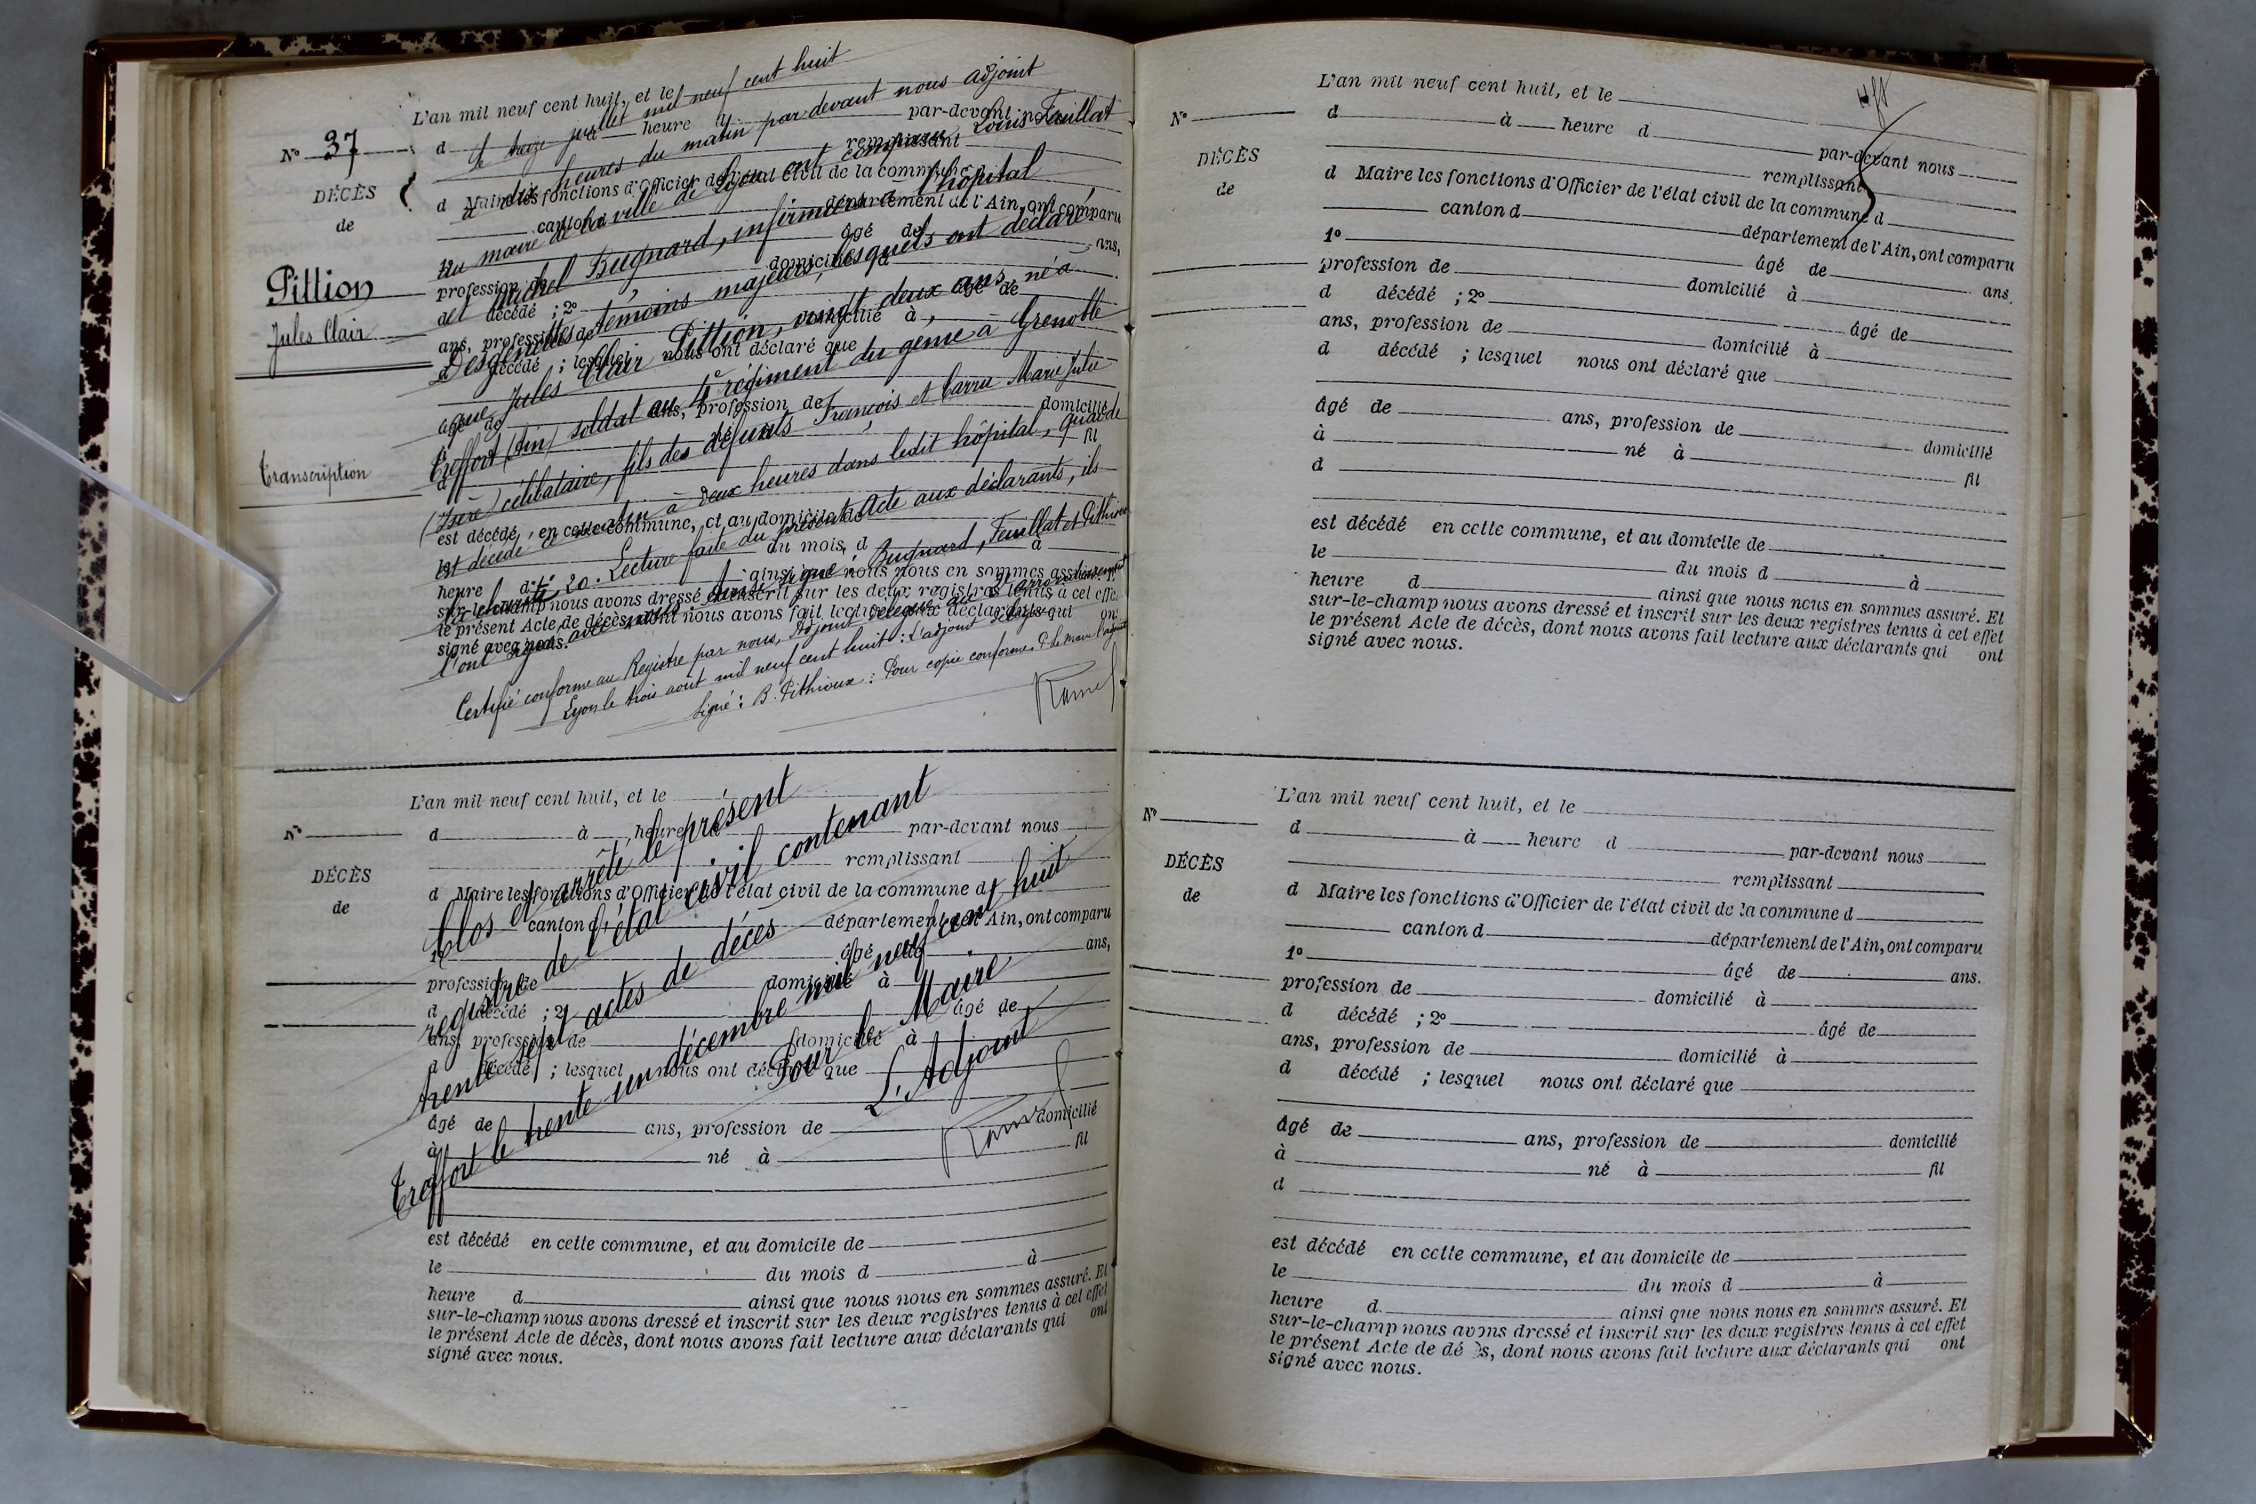 N° 37
DÉCÈS
de
Pillion
Jules Clair
Transcription
L'an mil neuf cent huit, et le
d heure par-devant nous
remplissant
d Maire les fonctions d'Officier de l'état civil de la commune d
canton d département de l'Ain, ont comparu
1° âgé de ans,
profession de domicilié à
d décédé ; 2° âgé de
ans, profession de domicilié à
d décédé ; lesquel nous ont déclaré que
âgé de ans, profession de domicilié
à né à fil
d
est décédé en cette commune, et au domicile de
le du mois d à
heure d ainsi que nous nous en sommes assuré. Et
sur-le-champ nous avons dressé et inscrit sur les deux registres tenus à cet effet
le présent Acte de décès, dont nous avons fait lecture aux déclarants qui ont
signé avec nous.
Le treize juillet mil neuf cent huit
à dix heures du matin par devant nous adjoint
au maire de la ville de Lyon ont comparu Louis Feuillat
et Michel Bugnard, infirmiers à l'hôpital
Desgenettes, témoins majeurs, lesquels ont déclaré
que Jules Clair Pillion, vingt deux ans, né à
Treffort (Ain) soldat au 4e régiment du génie à Grenoble
(Isère) célibataire, fils des défunts François et Carru Marie Julie
est décédé ce matin à deux heures dans ledit hôpital,
20. Lecture faite du présent Acte aux déclarants, ils
l'ont signé avec nous. Bugnard, Feuillat et Pithioux
Certifié conforme au Registre par nous, Adjoint délégué du arrondissement
Lyon le trois août mil neuf cent huit : L'adjoint délégué
Signé : B. Pithioux : Pour copie conforme. P. le Maire l'adjoint
L'an mil neuf cent huit, et le
N° d à heure par-devant nous
remplissant
DÉCÈS
de
d Maire les fonctions d'Officier de l'état civil de la commune d
canton d département de l'Ain, ont comparu
1° âgé de ans,
profession de domicilié à
d décédé ; 2° âgé de
ans, profession de domicilié à
d décédé ; lesquel nous ont déclaré que
âgé de ans, profession de domicilié
à né à fil
est décédé en cette commune, et au domicile de
le du mois d à
heure d ainsi que nous nous en sommes assuré. Et
sur-le-champ nous avons dressé et inscrit sur les deux registres tenus à cet effet
le présent Acte de décès, dont nous avons fait lecture aux déclarants qui ont
signé avec nous.
Clos et arrêté le présent
registre de l'état civil contenant
trente sept actes de décès
Treffort le trente un décembre mil neuf cent huit
Pour le Maire
L'Adjoint
L'an mil neuf cent huit, et le
N° d à heure d
par-devant nous
remplissant
DÉCÈS
de
d Maire les fonctions d'Officier de l'état civil de la commune d
canton d département de l'Ain, ont comparu
1° âgé de ans.
profession de domicilié à
d décédé ; 2° âgé de
ans, profession de domicilié à
d décédé ; lesquel nous ont déclaré que
âgé de ans, profession de domicilié
à né à fil
d
est décédé en cette commune, et au domicile de
le du mois d à
heure d ainsi que nous nous en sommes assuré. Et
sur-le-champ nous avons dressé et inscrit sur les deux registres tenus à cet effet
le présent Acte de décès, dont nous avons fait lecture aux déclarants qui ont
signé avec nous.
L'an mil neuf cent huit, et le
N° d à heure d
par-devant nous
remplissant
DÉCÈS
de
d Maire les fonctions d'Officier de l'état civil de la commune d
canton d département de l'Ain, ont comparu
1° âgé de ans.
profession de domicilié à
d décédé ; 2° âgé de
ans, profession de domicilié à
d décédé ; lesquel nous ont déclaré que
âgé de ans, profession de domicilié
à né à fil
d
est décédé en cette commune, et au domicile de
le du mois d à
heure d. ainsi que nous nous en sommes assuré. Et
sur-le-champ nous avons dressé et inscrit sur les deux registres tenus à cet effet
le présent Acte de dé s, dont nous avons fait lecture aux déclarants qui ont
signé avec nous.